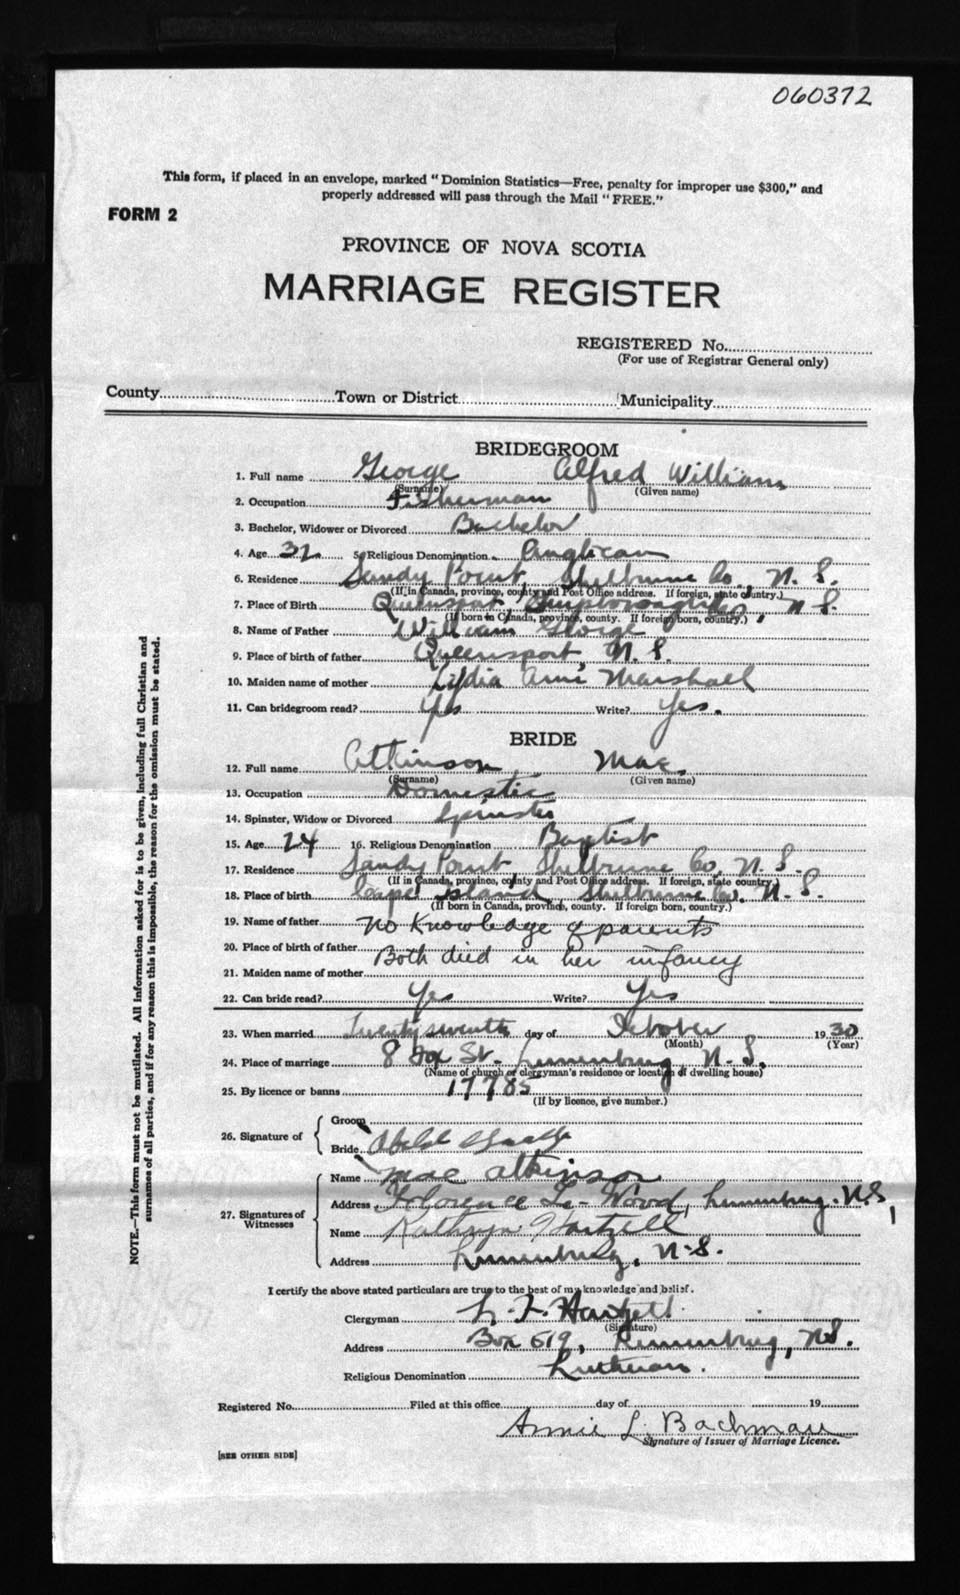 060372
This form, if placed in an envelope, marked "Dominion Statistics—Free, penalty for improper use $300," and
properly addressed will pass through the Mail "FREE."
FORM 2
PROVINCE OF NOVA SCOTIA
MARRIAGE REGISTER
REGISTERED No.
(For use of Registrar General only)
County Town or District Municipality
BRIDEGROOM
1. Full name George Alfred William
(Surname) (Given name)
2. Occupation Fisherman
3. Bachelor, Widower or Divorced Bachelor
4. Age 32 5. Religious Denomination Anglican
6. Residence Sandy Point, Shelburne Co., N. S.
(If in Canada, province, county and Post Office address. If foreign, state country.)
7. Place of Birth Queensport, N. S.
(If born in Canada, province, county. If foreign born, country.)
8. Name of Father William George
9. Place of birth of father Queensport, N. S.
10. Maiden name of mother Lydia Ann Marshall
11. Can bridegroom read? Yes Write? Yes.
BRIDE
12. Full name Atkinson Mae.
(Surname) (Given name)
13. Occupation Domestic
14. Spinster, Widow or Divorced Spinster
15. Age 24 16. Religious Denomination Baptist
17. Residence Sandy Point Shelburne Co, N. S.
(If in Canada, province, county and Post Office address. If foreign, state country.)
18. Place of birth Cape Island Shelburne Co. N. S.
(If born in Canada, province, county. If foreign born, country.)
19. Name of father No Knowledge of parents
20. Place of birth of father Both died in her infancy
21. Maiden name of mother
22. Can bride read? Yes Write? Yes
23. When married Twenty seventh day of October 1930
(Month) (Year)
24. Place of marriage 8 Fox St. Lunenburg, N. S.
(Name of church or clergyman's residence or location of dwelling house)
25. By licence or banns 17785
(If by licence, give number.)
26. Signature of Groom
Bride
27. Signatures of Witnesses
Name Mae Atkinson
Address Florence Le-Wood, Lunenburg. N.S,
Name Kathryn Hartzell
Address Lunenburg, N.S.
I certify the above stated particulars are true to the best of my knowledge and belief.
Clergyman L. F. Hartzell
(Signature)
Address Box 619, Lunenburg, N.S.
Religious Denomination Lutheran.
Registered No. Filed at this office day of 19
Annie L. Bachman
Signature of Issuer of Marriage Licence.
[SEE OTHER SIDE]
NOTE.—This form must not be mutilated. All information asked for is to be given, including full Christian and
surnames of all parties, and if for any reason this is impossible, the reason for the omission must be stated.